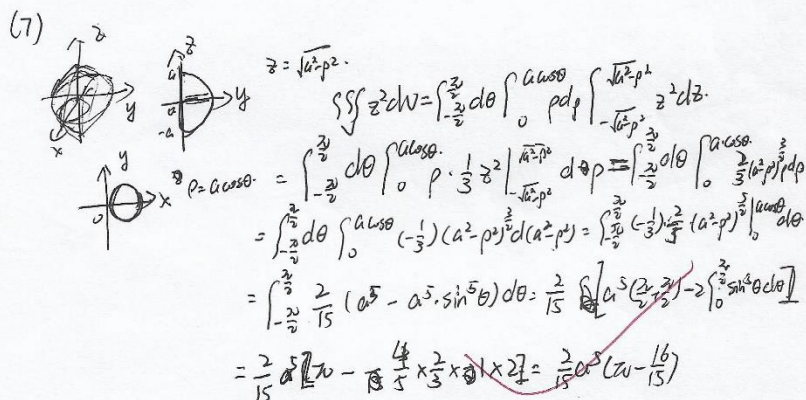 (7)
z
y
x
z
a
0
-a
y
y
0
x
ρ=acosθ.
z=√(a²-ρ²).
∭z²dv=∫_{-π/2}^{π/2}dθ∫_0^{acosθ}ρdρ∫_{-√(a²-ρ²)}^{√(a²-ρ²)}z²dz.
=∫_{-π/2}^{π/2}dθ∫_0^{acosθ}ρ·1/3z²|_{-√(a²-ρ²)}^{√(a²-ρ²)}dρ=∫_{-π/2}^{π/2}dθ∫_0^{a·cosθ}2/3(a²-ρ²)^{3/2}ρdρ
=∫_{-π/2}^{π/2}dθ∫_0^{acosθ}(-1/3)(a²-ρ²)^{3/2}d(a²-ρ²)=∫_{-π/2}^{π/2}(-1/3)·2/5(a²-ρ²)^{5/2}|_0^{acosθ}dθ
=∫_{-π/2}^{π/2}2/15(a⁵-a⁵·sin⁵θ)dθ=2/15[a⁵(π/2+π/2)-2∫_0^{π/2}sin⁵θdθ]
=2/15a⁵[π-4/5×2/3×1×2]=2/15a⁵(π-16/15)